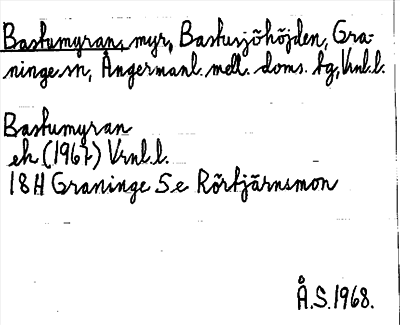 Bastumyran, myr, Bastusjöhöjden, Gra-
ninge sn, Ångermanl. mell. doms. tg, Vnl. l.
Bastumyran
ek (1967) Vrnl. l.
18H Graninge 5e Rörtjärnsmon
Å.S. 1968.